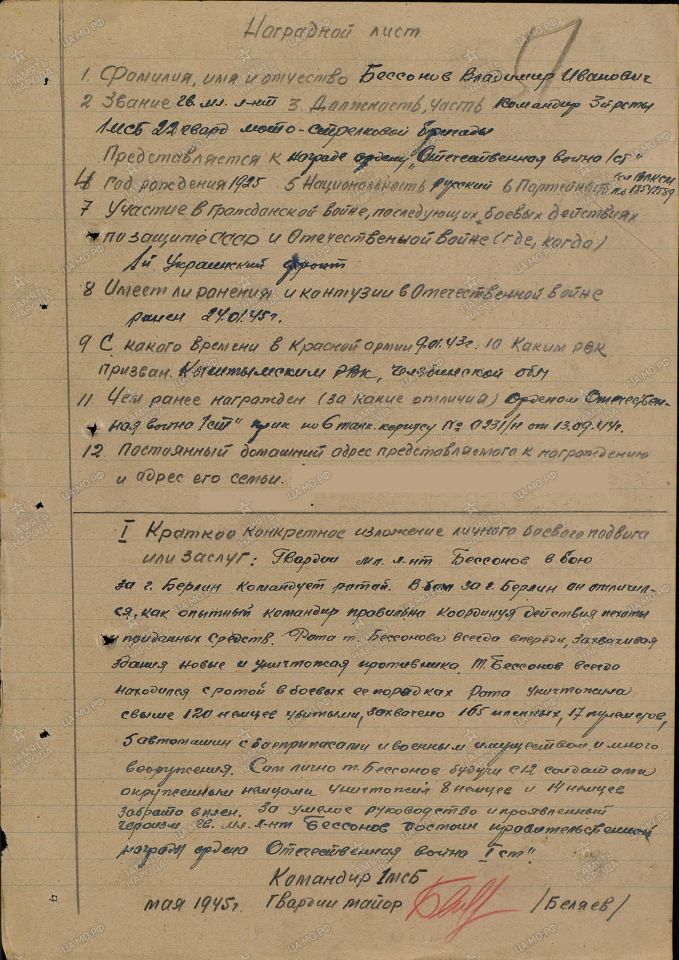 Наградной лист
1. Фамилия, имя и отчество Бессонов Владимир Иванович
2 Звание гв. мл. л-нт 3. Должность, часть Командир 3й роты
1 мсб 22 гвард мото-стрелковой бригады
Представляется к награде орден "Отечественная война I ст"
4 Год рождения 1925 5 Национальность русский 6 Партийность чл ВЛКСМ
7 Участие в Гражданской войне, последующих боевых действиях
по защите СССР и Отечественной войне (где, когда)
1й Украинский фронт
8 Имеет ли ранения и контузии в Отечественной войне
ранен 24.01.45 г.
9 С какого времени в Красной армии 9.01.43 г. 10 Каким РВК
призван. Кыштымским РВК, Челябинской обл
11 Чем ранее награжден (за какие отличия) орденом Отечествен-
ная война I ст" прик по 6 танк. корпусу № 023/н от 13.09.44 г.
12 Постоянный домашний адрес представляемого к награждению
и адрес его семьи.
I Краткое конкретное изложение личного боевого подвига
или заслуг: Гвардии мл. л-нт Бессонов в бою
за г. Берлин командует ротой. В бою за г. Берлин он отличил-
ся, как опытный командир правильно координуя действия пехоты
и приданных средств. Рота т. Бессонова всегда впереди, захватывая
здания новые и уничтожая противника. Т. Бессонов всегда
находился с ротой в боевых ее порядках Рота уничтожила
свыше 120 немцев убитыми, захвачено 165 пленных, 17 пулеметов,
5 автомашин с боеприпасами и военным имуществом и много
вооружения. Сам лично т. Бессонов будучи с 12 солдатами
окруженными немцами уничтожил 8 немцев и 14 немцев
забрато в плен. За умелое руководство и проявленный
героизм гв. мл. л-нт Бессонов достоин правительственной
награды ордена Отечественная война I ст".
Командир 1 мсб
мая 1945 г. Гвардии майор /Беляев/